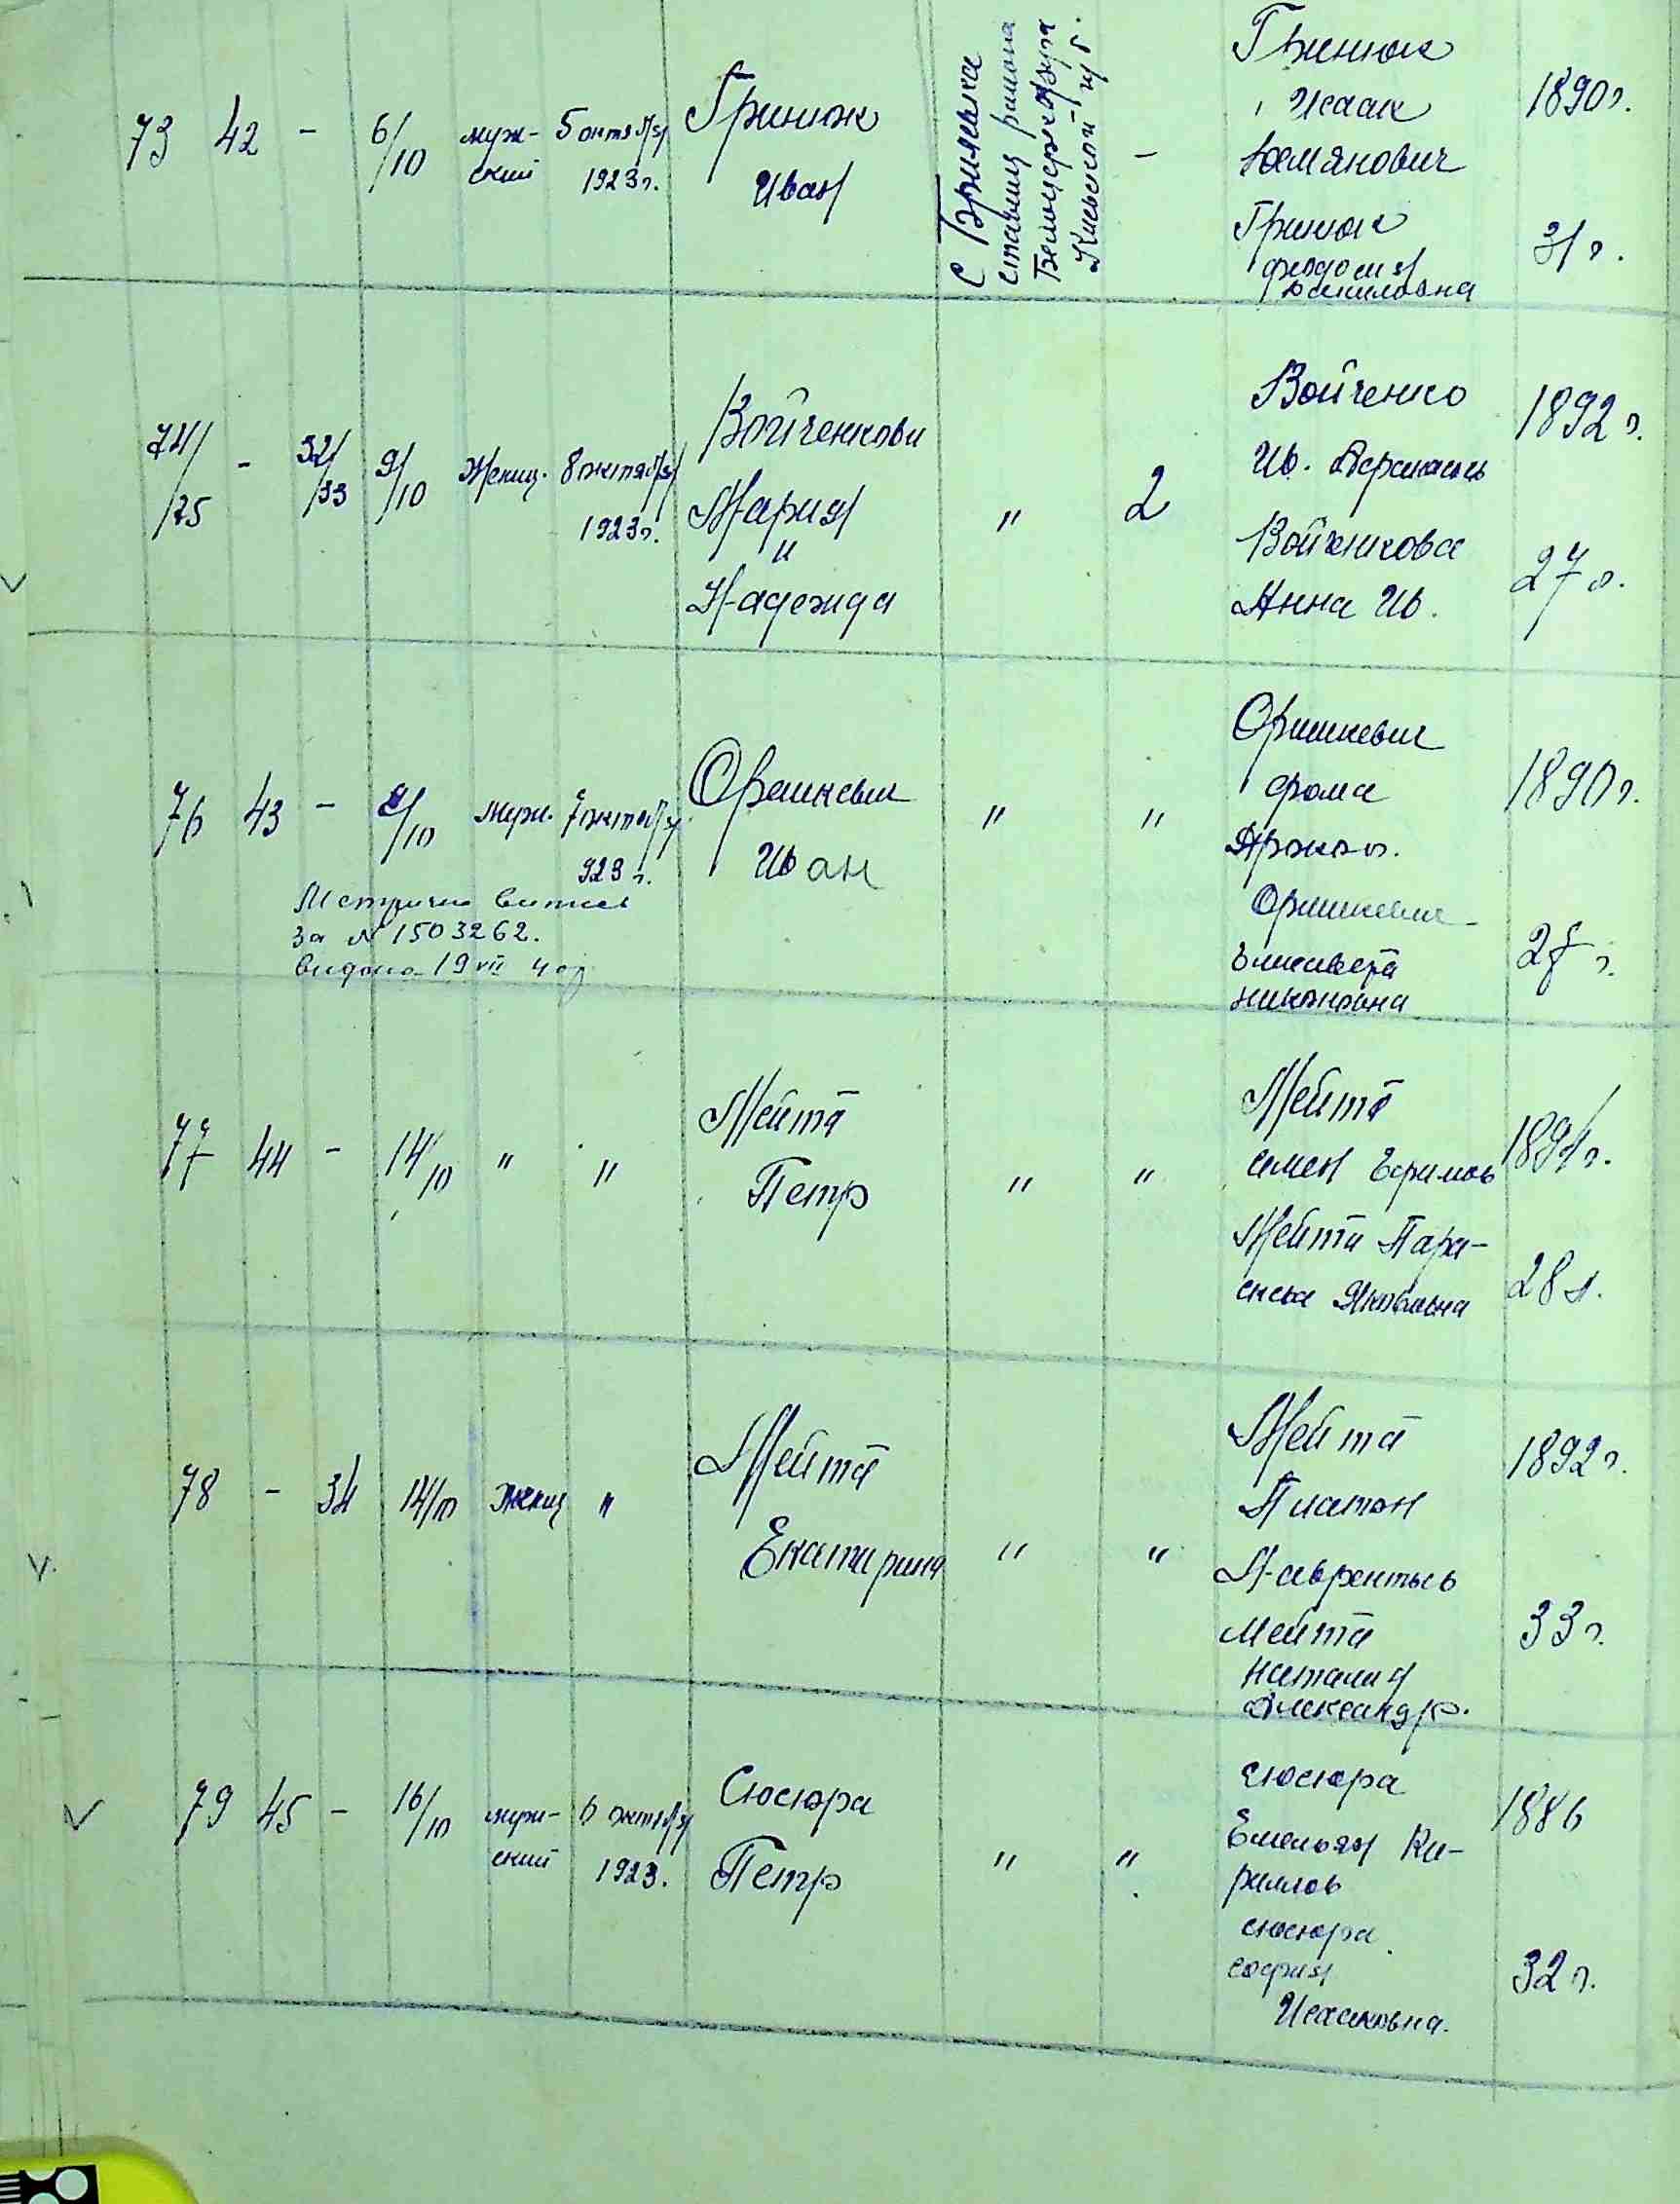 73 42 - 6/10 муж-ский 5 октября 1923 г. Гринюк Иван
с Бриловка
района
Белоцерк округа
Киевской губ.
-
Гринюк
Исаак
1890 г.
Гринюк
Феодосия
Даниловна
31 г.
74/75 - 32/33 9/10 Женщ. 8 октября 1923 г.
Войченкови
Мария
и
Надежда
" 2
Войченко
Ив.
1892 г.
Войченкова
Анна Ив.
27 г.
76 43 - 8/10 муж. 7 октября 923 г.
Оришкевич
Иван
" "
Оришкевич
Фома
Прокоп.
1890 г.
Оришкевич
Елисавета
Никоновна
Метричний витяг
за № 1503262.
видано 19 VII 40 р
77 44 - 14/10 " "
Мейта
Петр
" "
Мейта
Семен Ефимов
189 г.
Мейта Пара-
ска Яковлевна
28 л.
78 - 34 14/10 женщ "
Мейта
Екатерина
" "
Мейта
Платон
Лаврентьев
1892 г.
Мейта
Наталия
Александр.
33 г.
79 45 - 16/10 муж-ский 6 октября 1923.
Сюсюра
Петр
" "
Сюсюра
Емельян Ки-
риллов
1886
Сюсюра
София
Исааковна.
32 г.